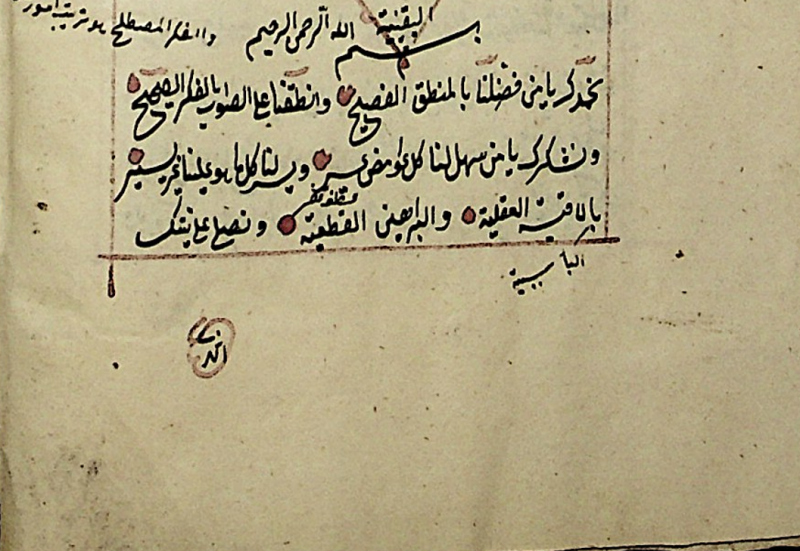 والفكر المصطلح هو ترتيب امور
اليقينية
بسم الله الرحمن الرحيم
نحمدك يا من فضلنا بالمنطق الفصيح وانطقنا على الصواب بالفكر الصحيح
ونشكرك يا من سهل لنا كل غوامض عسير ويسر لنا كل ما هو علينا غير يسير
العقلية والبراهين القطعية ونصلي على نبيك
الباء سببية